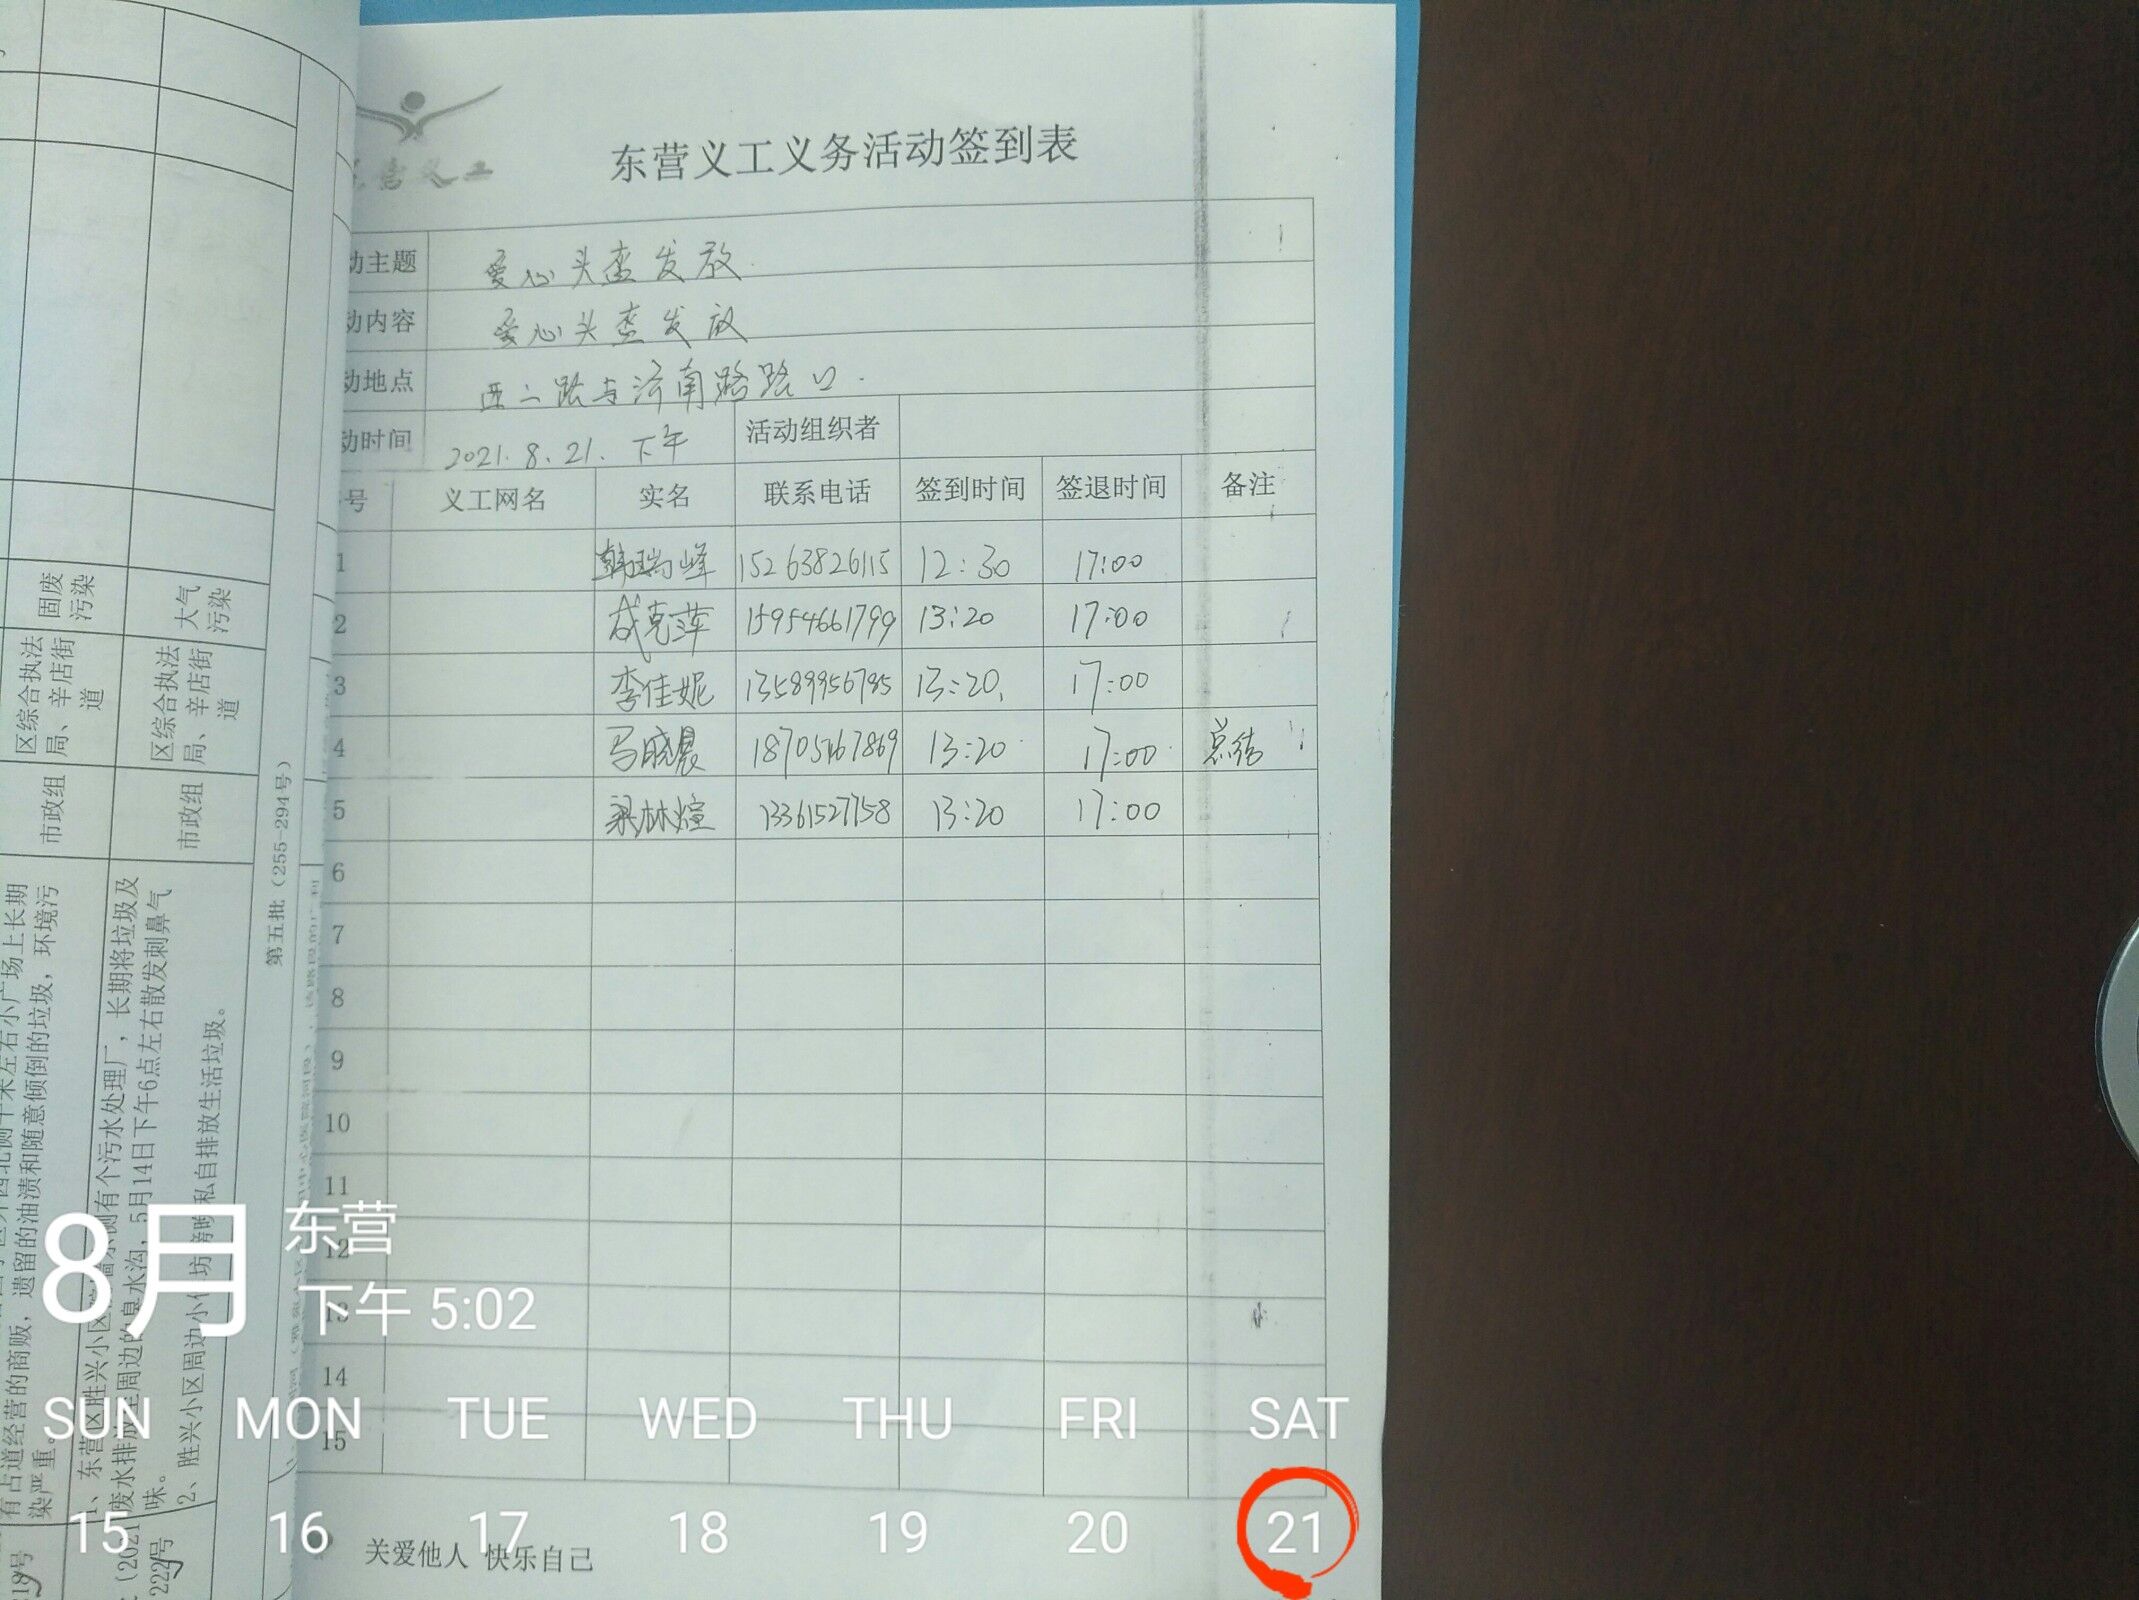 东营义工义务活动签到表
动主题 爱心头盔发放
动内容 爱心头盔发放
动地点 西二路与济南路路口.
动时间 2021.8.21.下午 活动组织者
号 义工网名 实名 联系电话 签到时间 签退时间 备注
1 韩瑞峰 15263826115 12:30 17:00
2 成克萍 15954661799 13:20 17:00
3 李佳妮 13589956785 13:20 17:00
4 马晓晨 13:20 17:00 总结
5 梁林煊 13361527758 13:20 17:00
6
7
8
9
10
11
12
13
14
15
关爱他人 快乐自己
固废污染
大气污染
区综合执法局、辛店街道
区综合执法局、辛店街道
市政组
市政组
第五批（255-294号）
有占道经营的商贩，遗留的油渍和随意倾倒的垃圾，环境污染严重。
废水排放至周边的臭水沟，5月14日下午6点左右散发刺鼻气味。
私自排放生活垃圾。
8月
东营
下午 5:02
SUN MON TUE WED THU FRI SAT
15 16 17 18 19 20 21